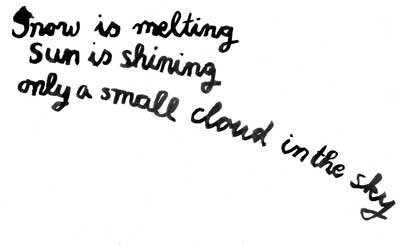 Snow is melting
Sun is shining
only a small cloud in the sky